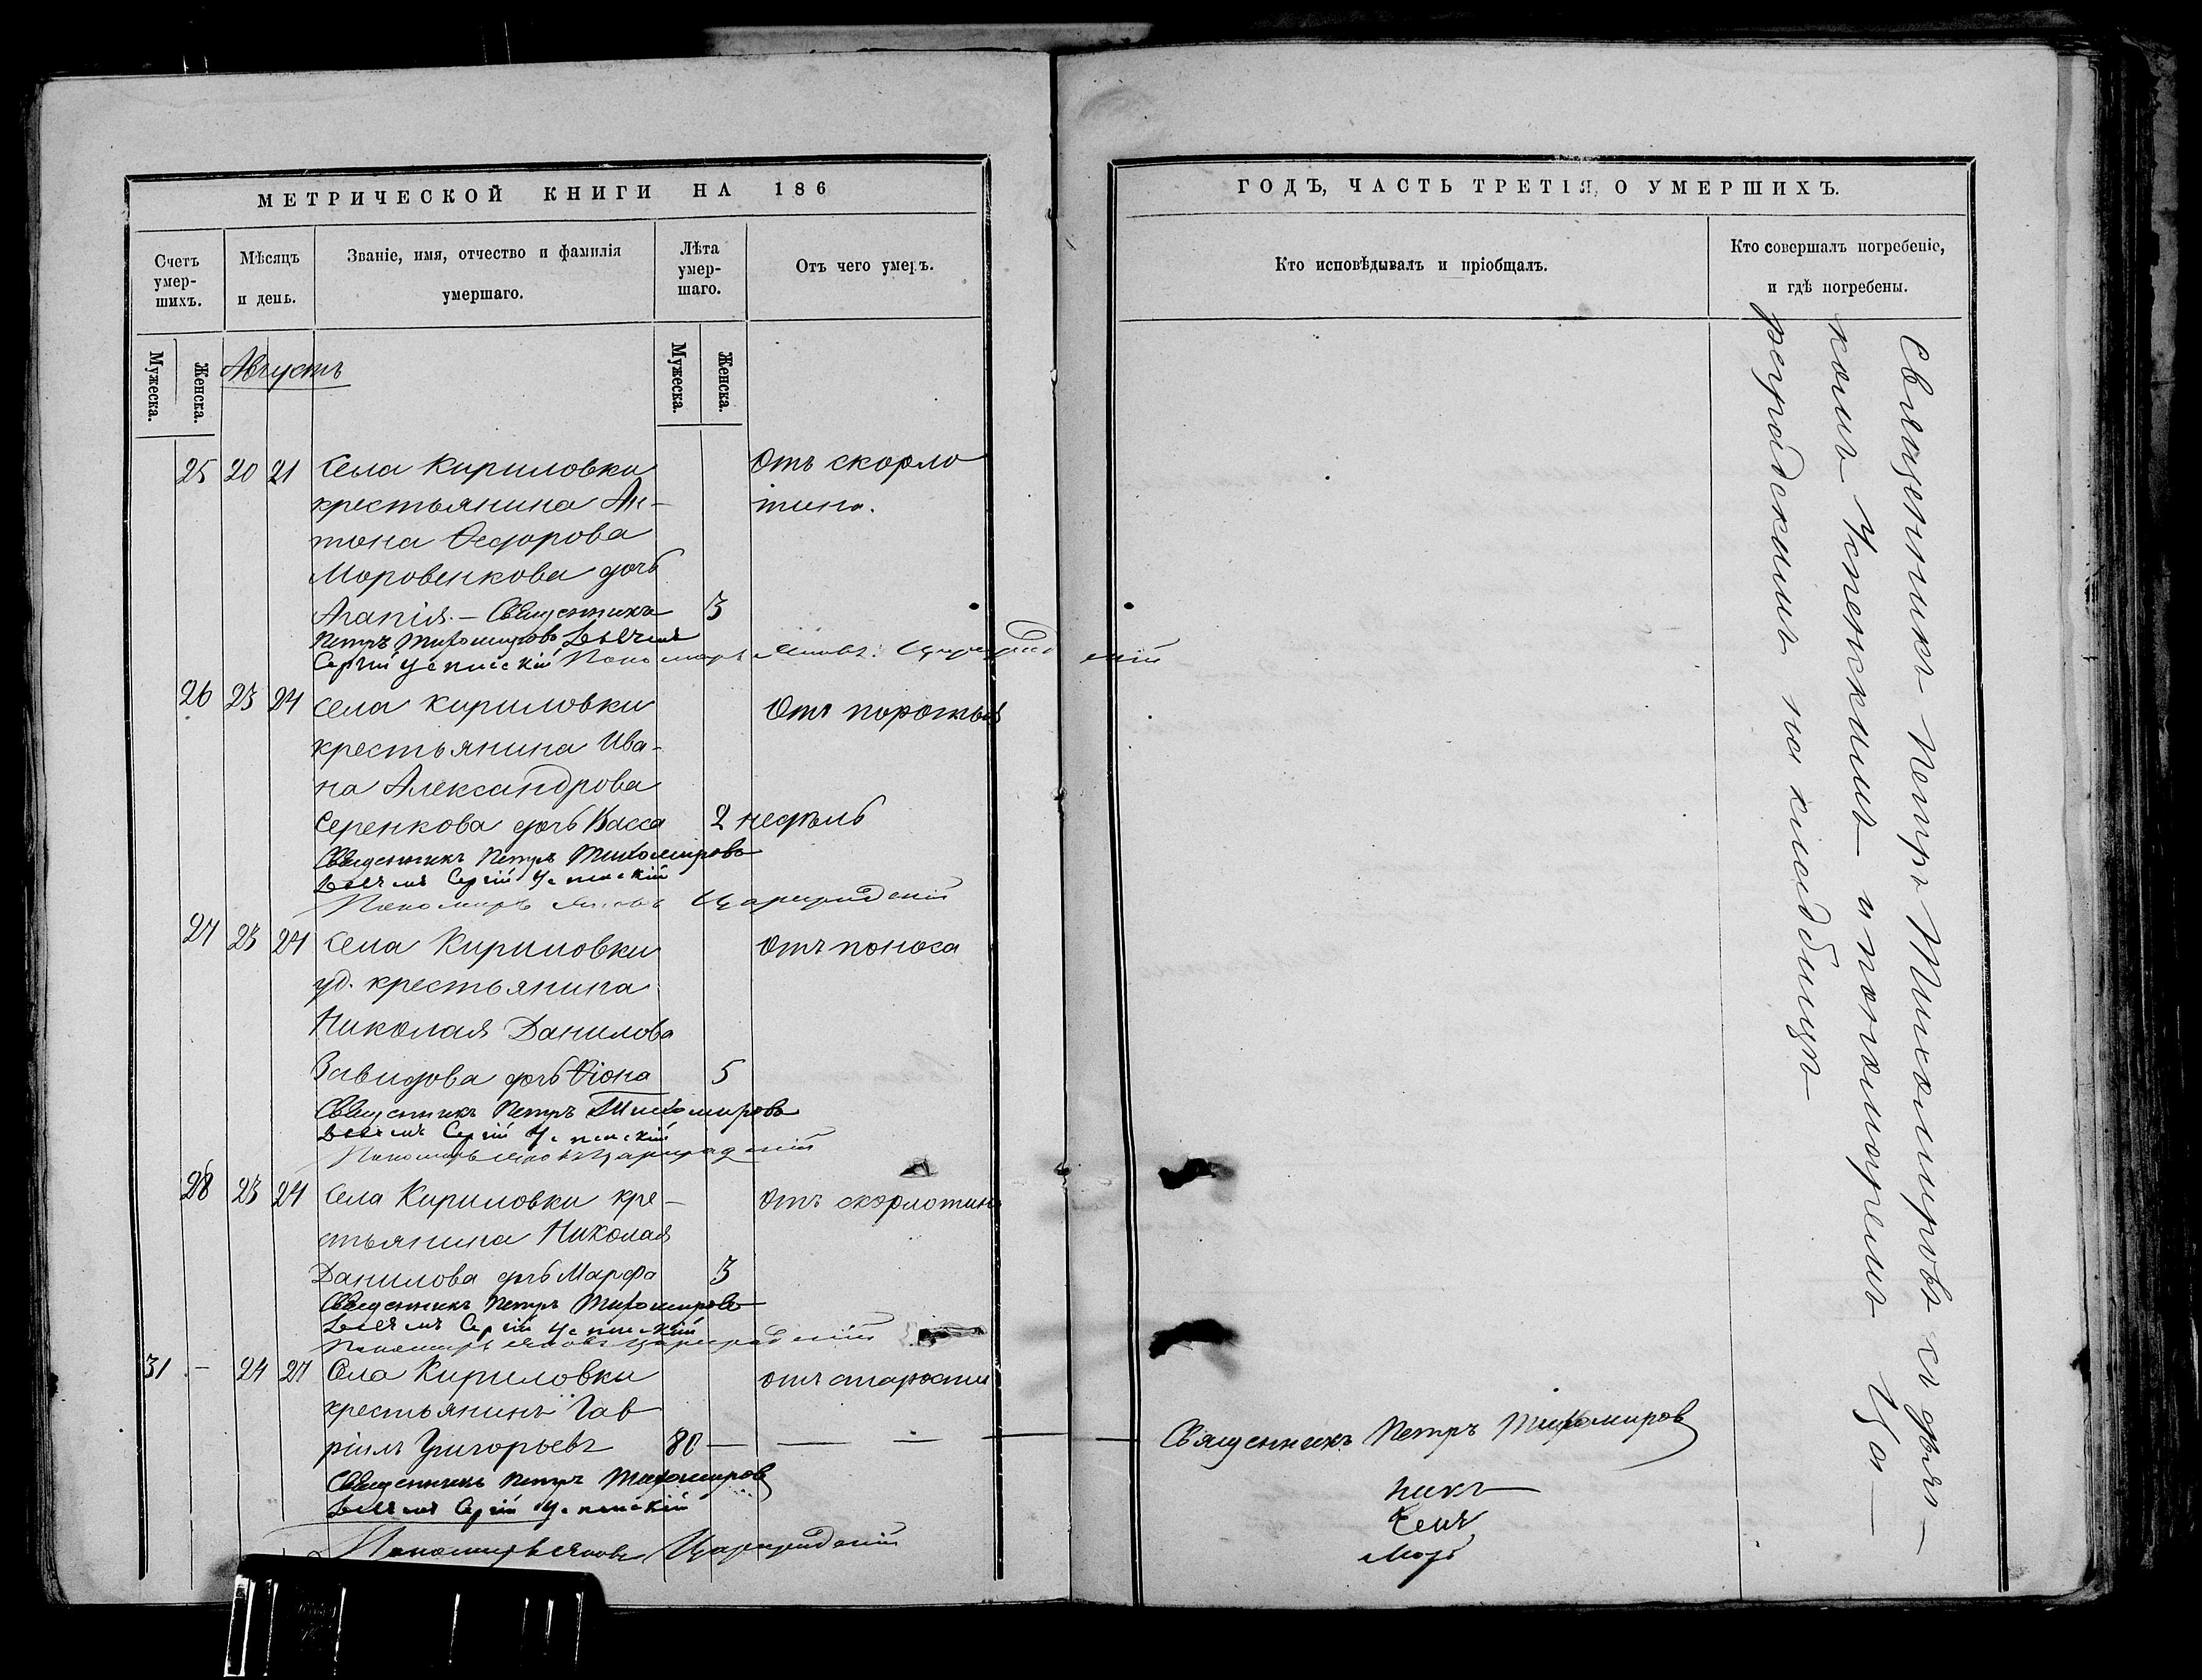 МЕТРИЧЕСКОЙ КНИГИ НА 186
Счетъ умер-шихъ.
Мѣсяцъ и день.
Званіе, имя, отчество и фамилія умершаго.
Лѣта умер-шаго.
Отъ чего умеръ.
Мужеска.
Женска.
Августъ
Мужеска.
Женска.
25 20 21 Села Кириловки Отъ скорло
крестьянина Ан- тины.
тона Ѳедорова
Моровенкова дочь
Агапія. — Священникъ 3
Петръ Тихомировъ
Сергій Успенскій Пономарь Яковъ Цареградскій
26 23 24 Села Кириловки Отъ порожья
крестьянина Ива-
на Александрова
Серенкова дочь Васса 2 недѣль
Священникъ Петръ Тихомировъ
Сергій Успенскій
Пономарь Яковъ Цареградскій
27 23 24 Села Кириловки Отъ поноса
уд. крестьянина
Николая Данилова
Завидова дочь Ѳіона 5
Священникъ Петръ Тихомировъ
Сергій Успенскій
Пономарь Яковъ Цареградскій
28 23 24 Села Кириловки кре- Отъ скорлотины
стьянина Николая
Данилова дочь Марфа 3
Священникъ Петръ Тихомировъ
Сергій Успенскій
Пономарь Яковъ Цареградскій
31 - 24 27 Села Кириловки отъ старости
крестьянинъ Гав
ріилъ Григорьевъ 80 — — —
Священникъ Петръ Тихомировъ
Сергій Успенскій
Пономарь Яковъ Цареградскій
ГОДЪ, ЧАСТЬ ТРЕТІЯ, О УМЕРШИХЪ.
Кто исповѣдывалъ и пріобщалъ.
Кто совершалъ погребеніе,
и гдѣ погребены.
Священникъ Петръ Тихомировъ
никъ
чекъ
марь
Священникъ Петръ Тихомировъ съ дья-
комъ Успенскимъ и пономаремъ Ца-
реградскимъ на кладбищѣ